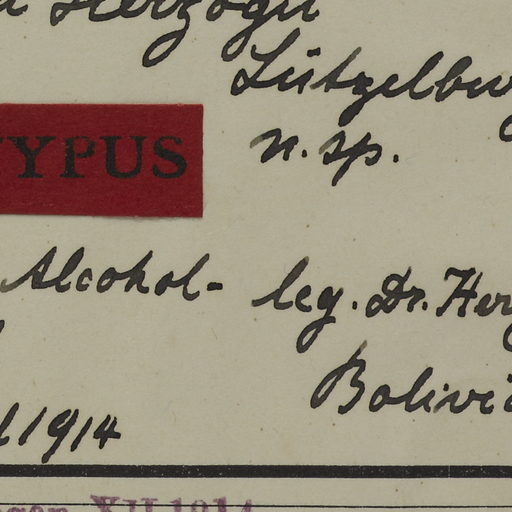 Herzogii
Lützelburg
n. sp.
TYPUS
Alcohol-
leg. Dr. Herz
Bolivia
1914
XII 1914